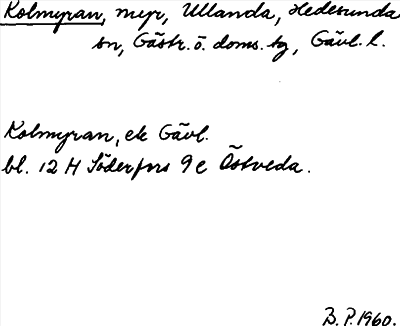 Kolmyran, myr, Ullanda, Hedesunda
sn, Gästr. ö. doms. tg, Gävl. l.
Kolmyran, ek Gävl.
bl. 12 H Söderfors 9 c Östveda.
B. P. 1960.